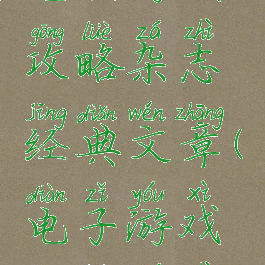 gōng lüè zá zhì
攻略杂志
jīng diǎn wén zhāng
经典文章(
diàn zǐ yóu xì
电子游戏